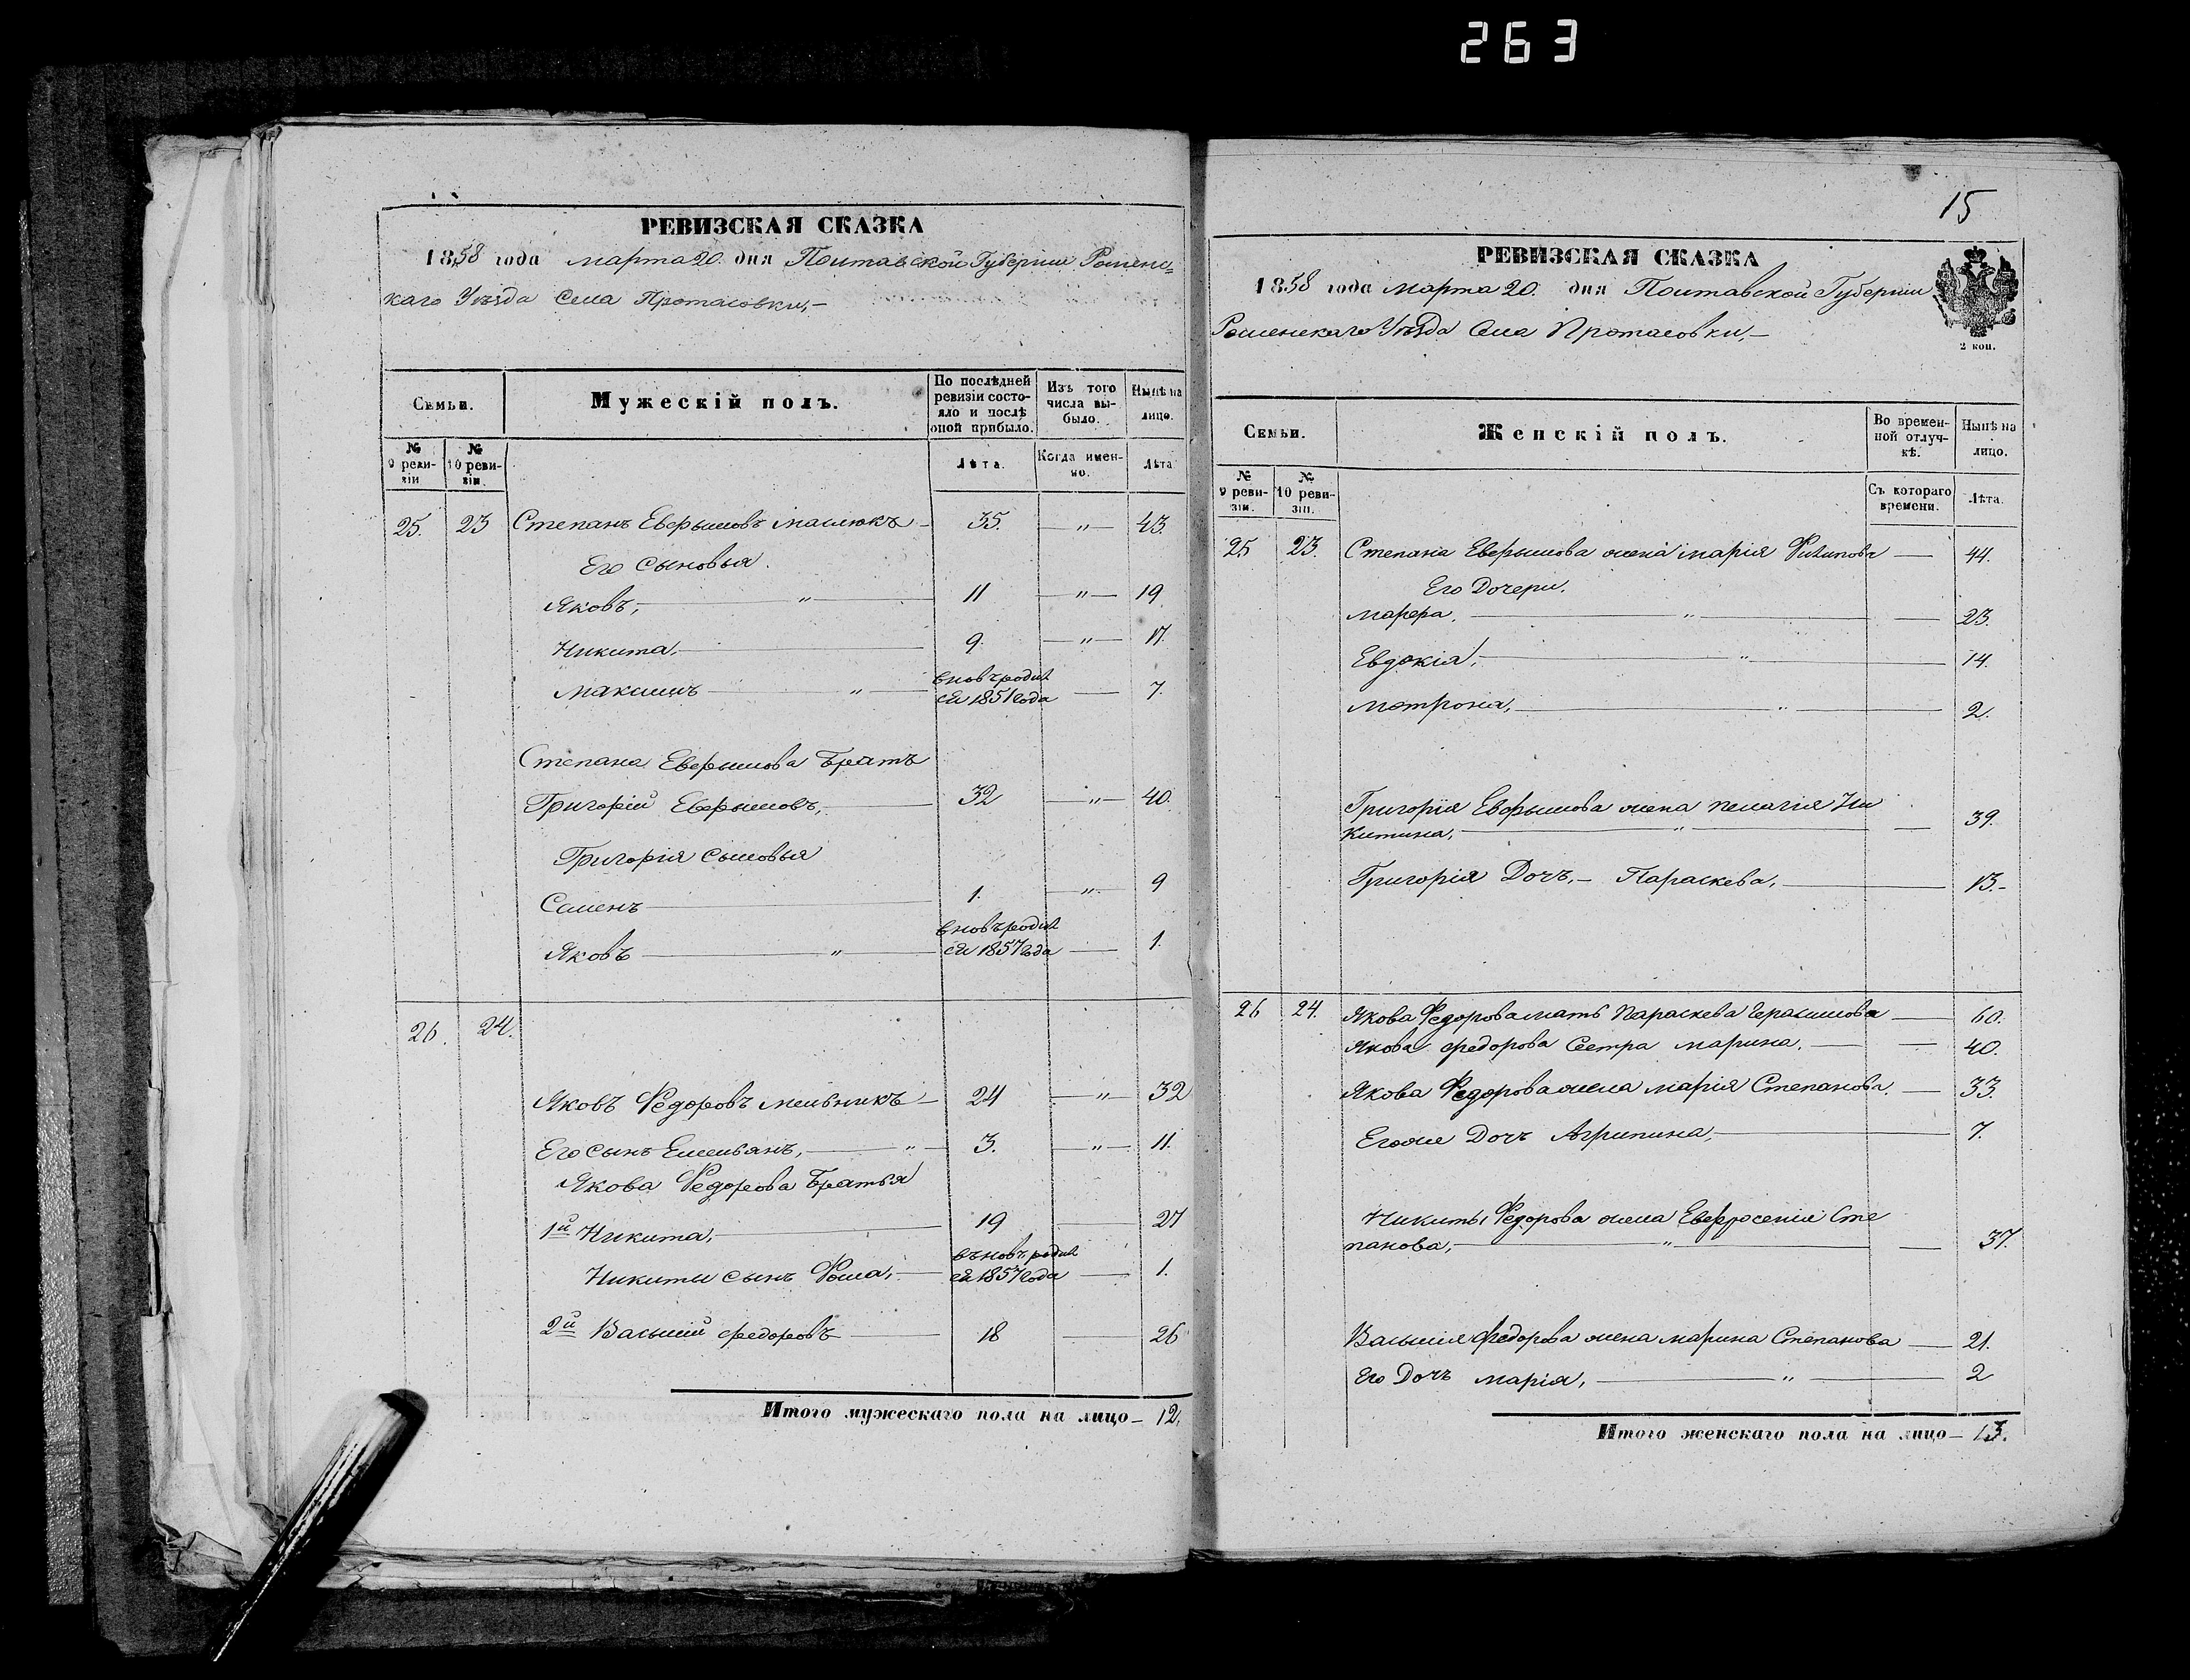 263
РЕВИЗСКАЯ СКАЗКА
1858 года марта 20. дня Полтавской Губернии Роменс=
каго Уѣзда Села Протасовки,—
Семьи.
Мужескій полъ.
По послѣдней ревизіи состояло и послѣ оной прибыло.
Изъ того числа выбыло.
Нынѣ на лицо.
№ 9 ревизіи
№ 10 ревизіи.
Лѣта.
Когда именно.
Лѣта
25. 23 Степанъ Евфимовъ Маслюкъ — 35. —"— 43.
Его Сыновья.
Яковъ, —"— 11 —"— 19
Никита, — 9. —"— 17.
Максимъ —"— вновь родил
ся 1851 года — 7.
Степана Евфимова Братъ
Григорій Евфимовъ, — 32 —"— 40.
Григорія Сыновья
Семенъ — 1. —"— 9
Яковъ —"— вновь родил
ся 1857 года — 1.
26. 24.
Яковъ Федоровъ Мельникъ — 24 —"— 32
Его сынъ Емельянъ, —"— 3. —"— 11.
Якова Федорова Братья
1й Никита, — 19 — 27
Никиты сынъ Фома, — вновь родил
ся 1857 года — 1.
2й Василій Федоровъ — 18 — 26
Итого мужескаго пола на лицо — 12.
15
РЕВИЗСКАЯ СКАЗКА
1858 года марта 20. дня Полтавской Губернии
Роменскаго Уѣзда Села Протасовки,—
2 коп.
Семьи.
Женскій полъ.
Во временной отлучкѣ.
Нынѣ на лицо.
№ 9 ревизіи.
№ 10 ревизіи.
Съ котораго времени.
Лѣта.
25 23. Степана Евфимова жена Марія Филипова — 44.
Его Дочери.
Марфа, —"— — 23.
Евдокія, —"— 14.
Матрона, —"— 2.
Григорія Евфимова жена Пелагія Ни
китина, —"— — 39.
Григорія Дочъ, — Параскева, — 13.—
26 24. Якова Федорова мать Параскева Герасимова — 60.
Якова Федорова Сестра Марина. — — 40.
Якова Федорова жена Марія Степанова. — 33.
Егоже Дочъ Агрипина, — 7.
Никиты Федорова жена Евфросенія Сте
панова, —"— — 37.
Василія Федорова жена Марина Степанова — 21.
Его Дочъ Марія, —"— 2
Итого женскаго пола на лицо — 13.